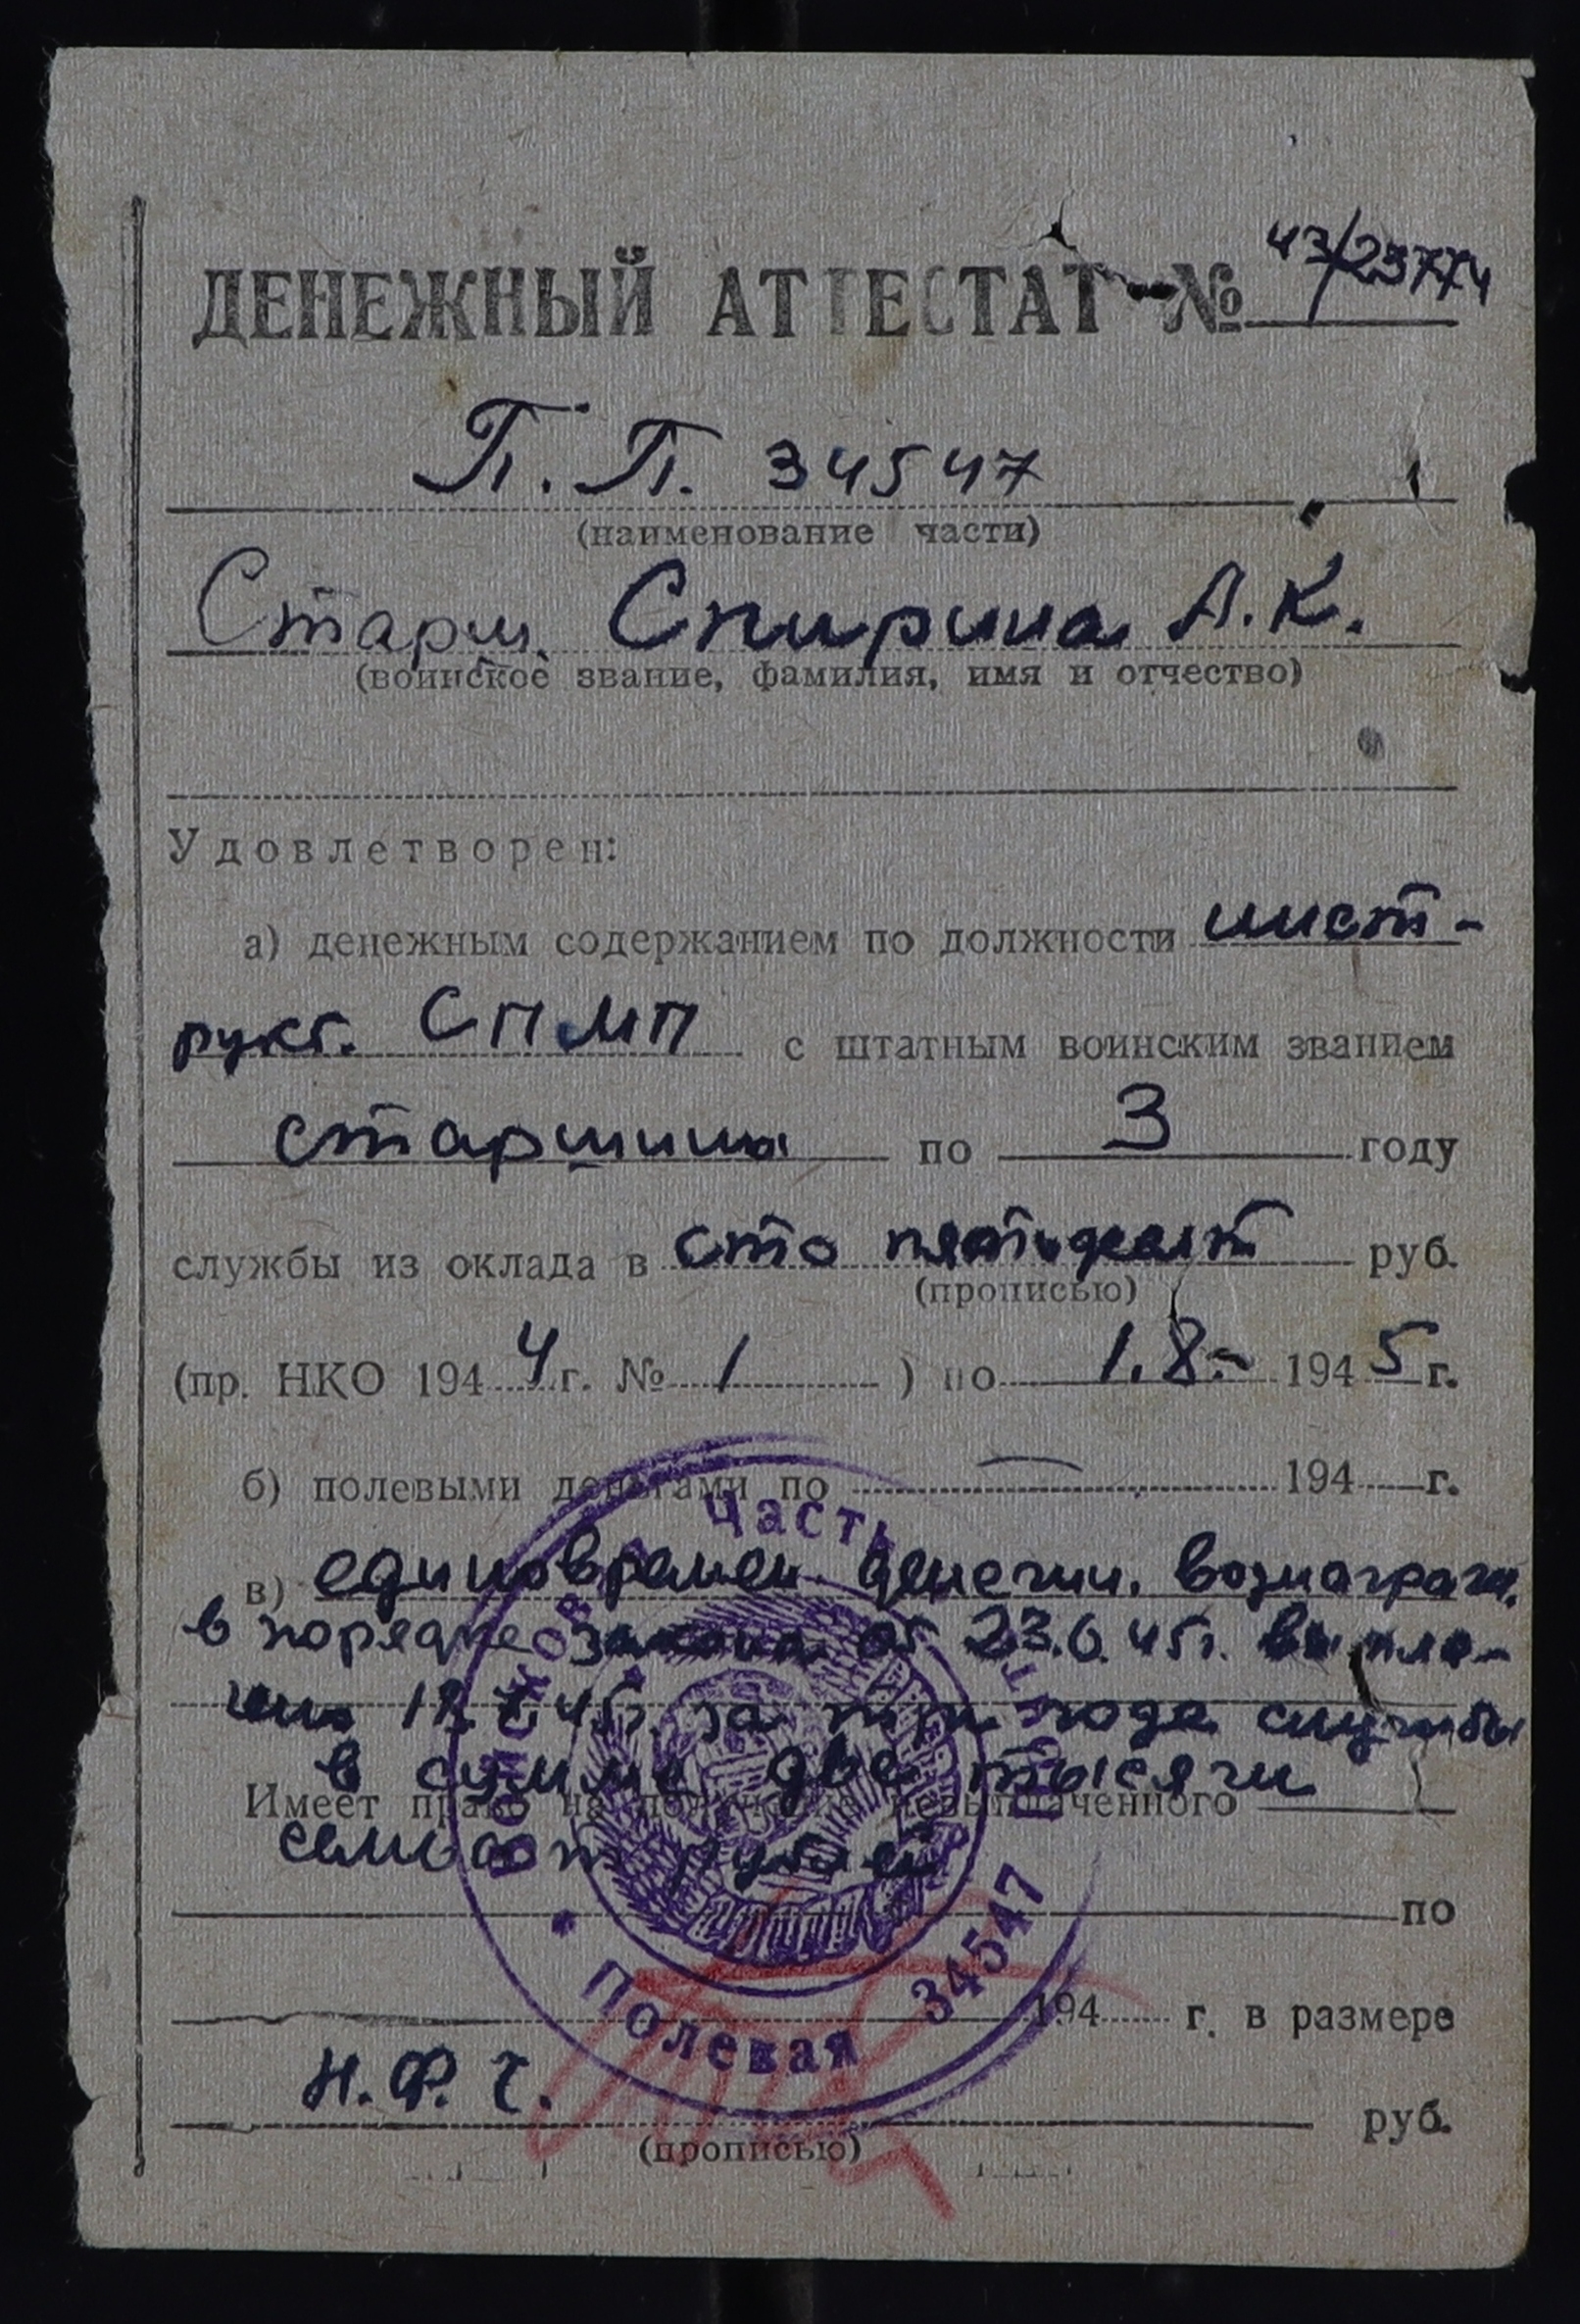 ДЕНЕЖНЫЙ АТТЕСТАТ № 43/23774
П.П. 34547
(наименование части)
Старш. Спирина А.К.
(воинское звание, фамилия, имя и отчество)
Удовлетворен:
а) денежным содержанием по должности инст-
рукт. СПМП с штатным воинским званием
старшины по 3 году
службы из оклада в сто пятьдесят руб.
(прописью)
(пр. НКО 1944 г. № 1 ) по 1.8.- 1945 г.
б) полевыми деньгами по — 194 г.
в) единовремен. денежн. вознагражд.
в порядке закона от 23.6.45г. выпла-
чено за три года службы
в сумме две тысячи
Имеет право на получение невыплаченного
семьсот рублей
по
194 г. в размере
Н.Ф.Ч.
руб.
(прописью)
Войсковая Часть
Полевая Почта 34547